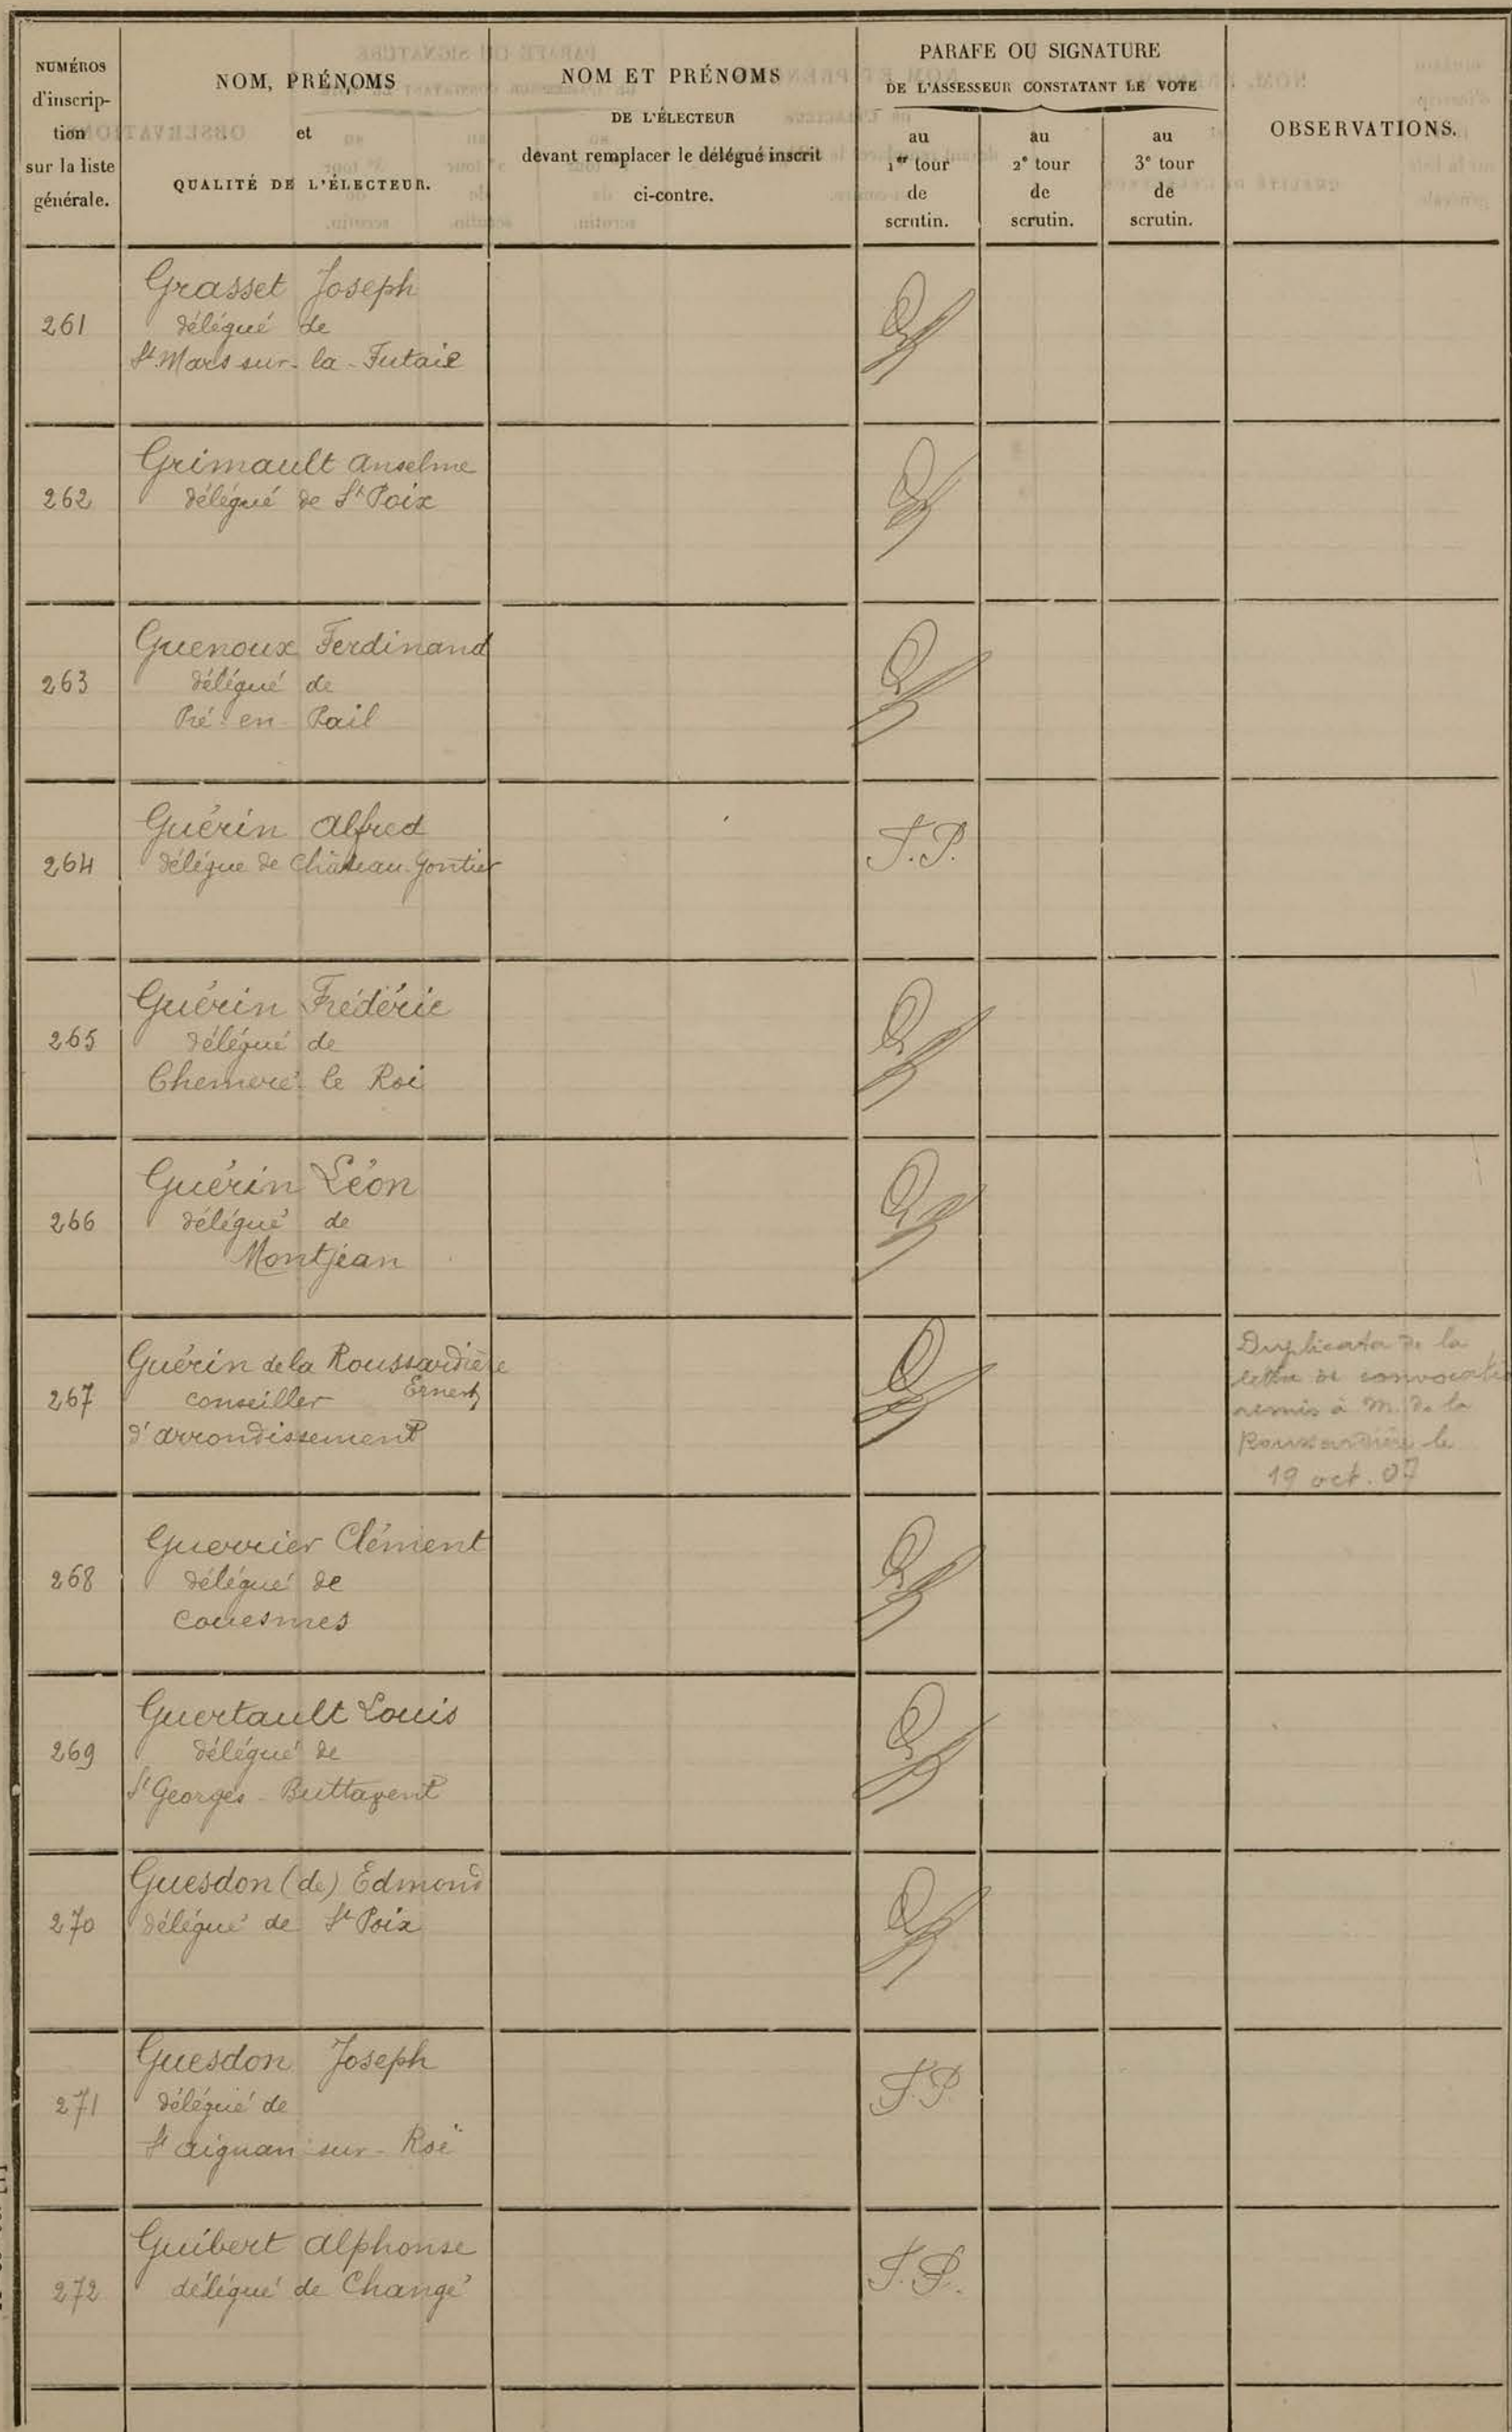 NUMÉROS
d'inscrip-
tion
sur la liste
générale.
NOM, PRÉNOMS
et
QUALITÉ DE L'ÉLECTEUR.
NOM ET PRÉNOMS
DE L'ÉLECTEUR
devant remplacer le délégué inscrit
ci-contre.
PARAFE OU SIGNATURE
DE L'ASSESSEUR CONSTATANT LE VOTE
au
1er tour
de
scrutin.
au
2e tour
de
scrutin.
au
3e tour
de
scrutin.
OBSERVATIONS.
Grasset Joseph
261 délégué de
St Mars sur-la-Futaie
Grimault Anselme
262 délégué de St Poix
Guenoux Ferdinand
263 délégué de
Pré-en-Pail
Guérin Alfred
264 délégué de Château-Gontier
J.P.
Guérin Frédéric
265 délégué de
Chemeré le Roi
Guérin Léon
266 délégué de
Montjean
Guérin de la Roussardière
267 conseiller Ernest
d'arrondissement
Duplicata de la
lettre de convocation
remis à M. de la
Roussardière le
19 oct. 07
Guerrier Clément
268 délégué de
Couesmes
Guertault Louis
269 délégué de
St Georges-Buttavent
Guesdon (de) Edmond
270 délégué de St Poix
Guesdon Joseph
271 délégué de
St Aignan-sur-Roë
J.P.
Guibert Alphonse
272 délégué de Changé
J.P.